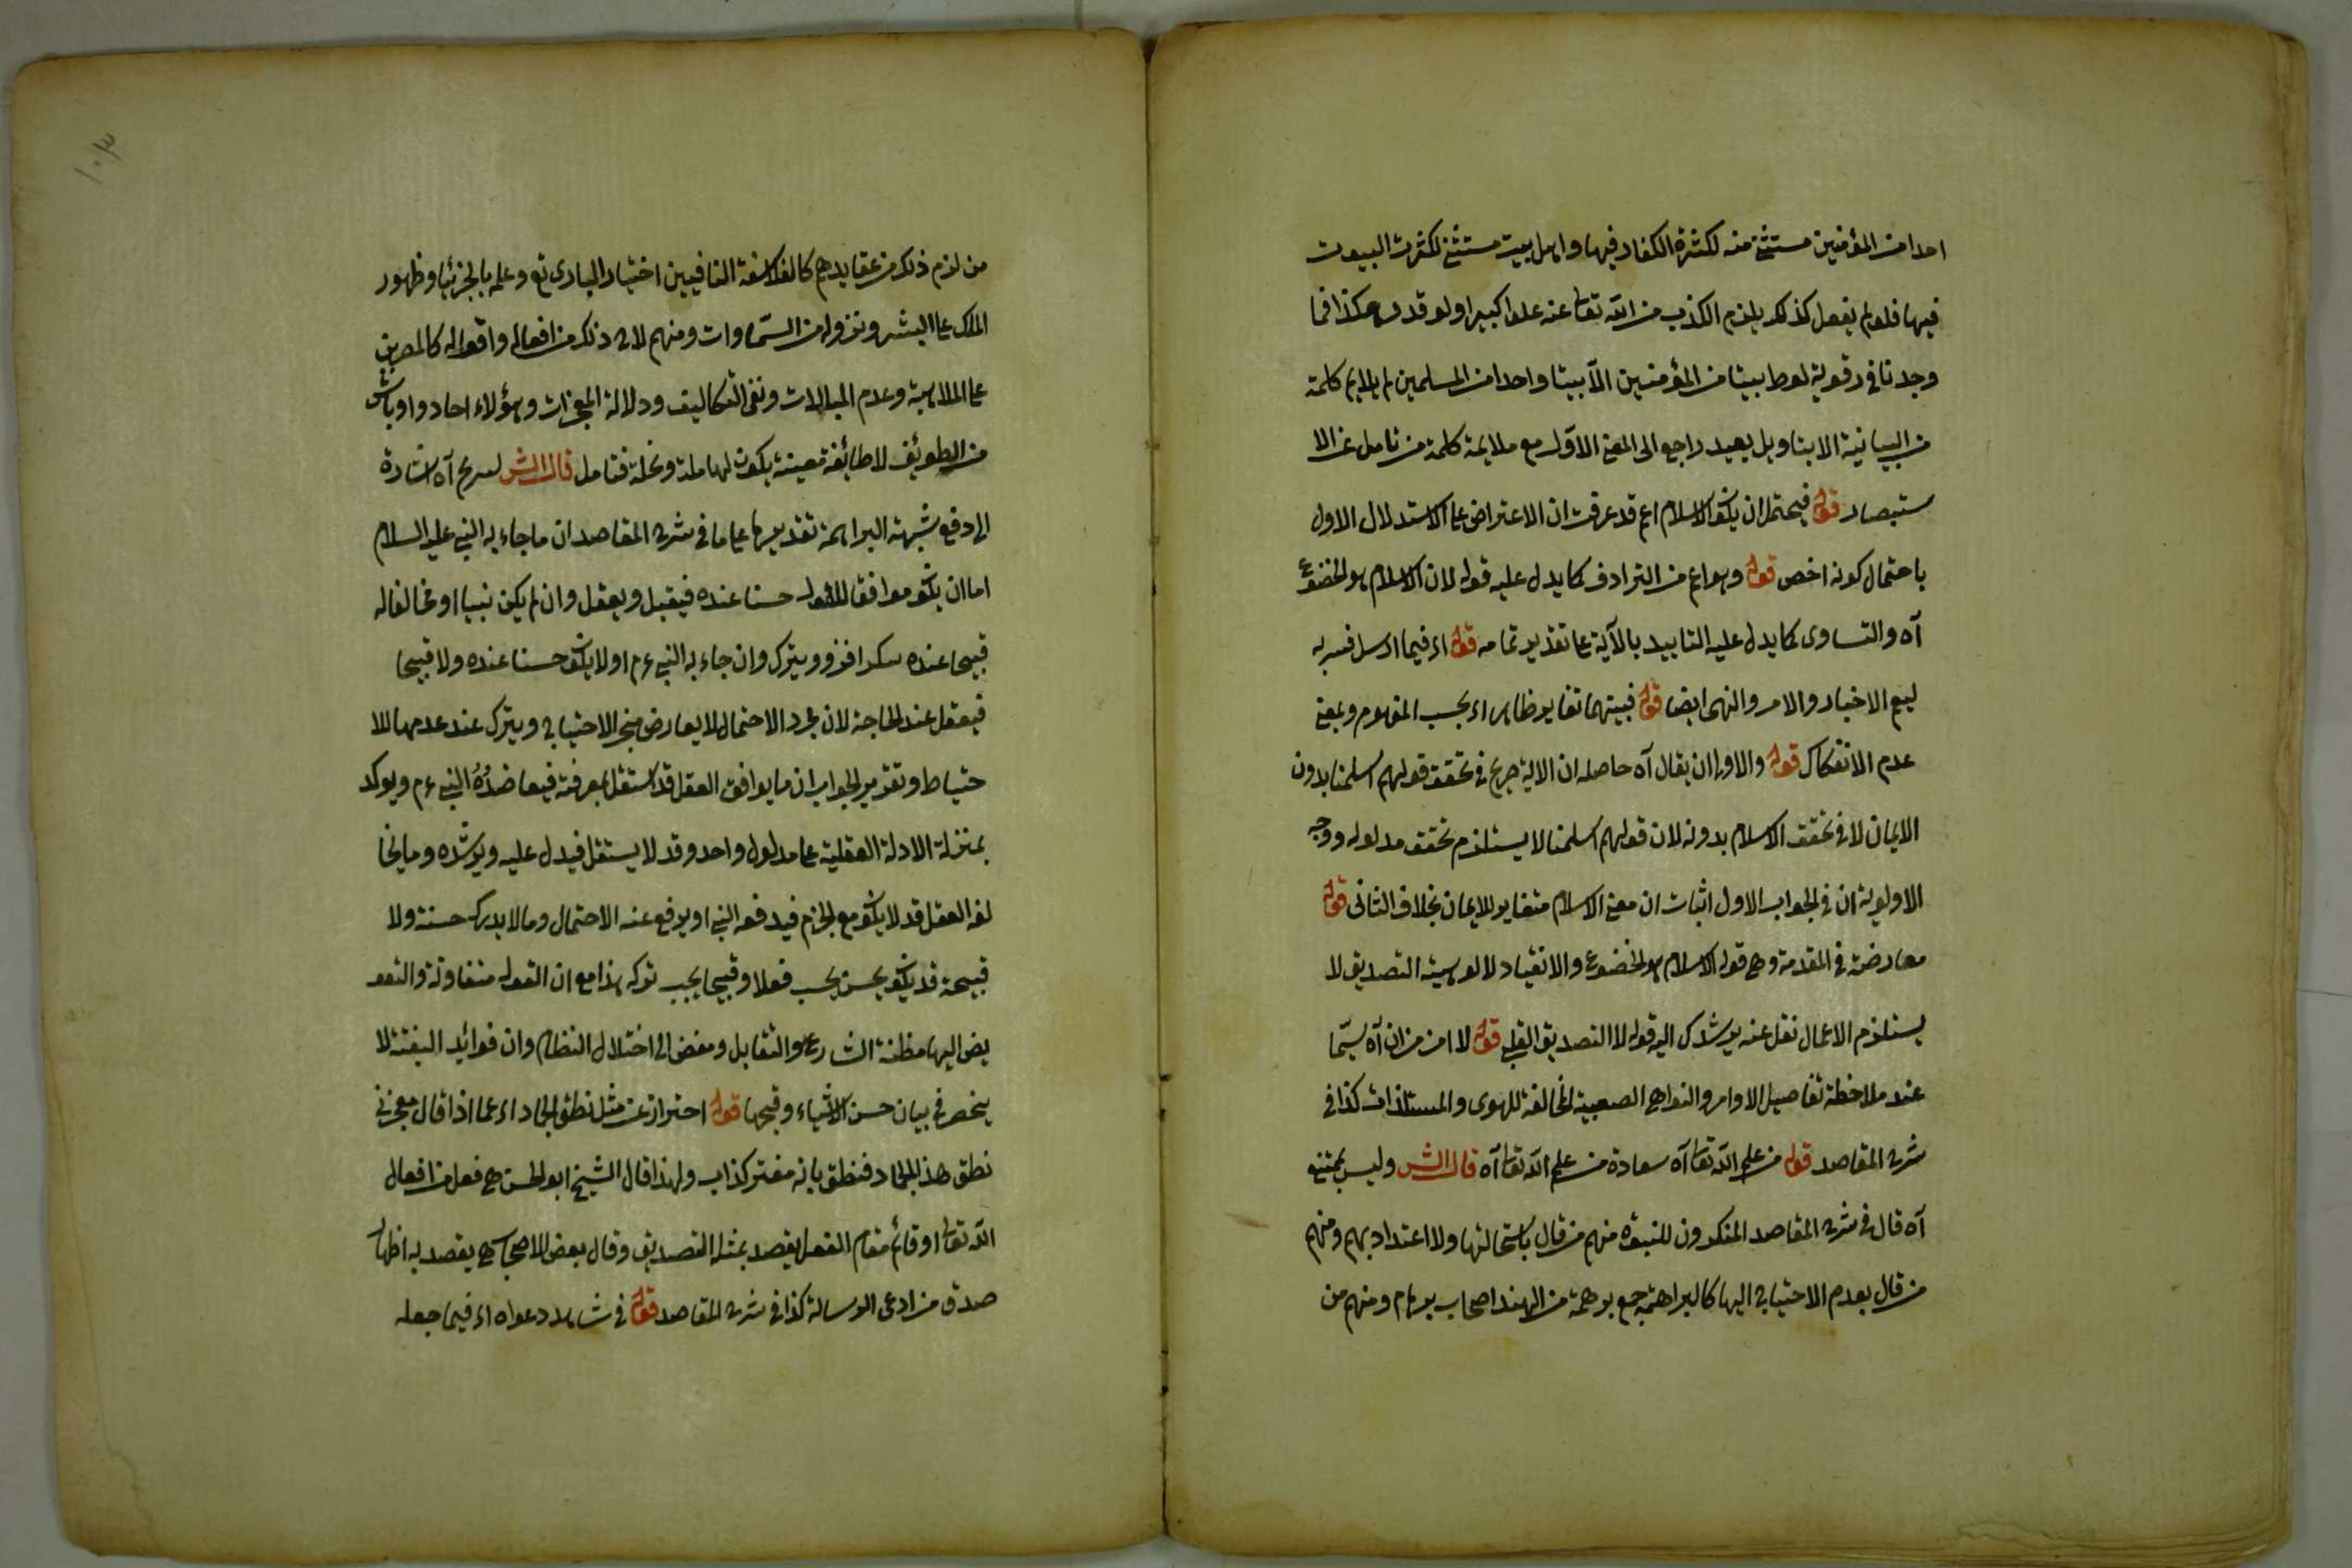 احدا من المؤمنين مستثنى منه لكثرة الكفار فيها واهل بيت مستثنى لكثرت البيوت
فيها فلو لم يفعل كذلك يلزم الكذب من الله تعا عنه علوا كبيرا ولو قدر هكذا فما
وجدنا في قرية لوط بيتا من المؤمنين الا بيتا واحدا من المسلمين لم يلايم كلمة
من البيانية الا بتاويل بعيد راجع الى المعنى الاول مع ملايمة كلمة من تامل عن الا
ستبصار قوله فيحتمل ان يكون الاسلام اعم قد عرفت ان الاعتراض على الاستدلال الاول
باحتمال كونه اخص قوله وهو اعم من الترادف كما يدل عليه قوله لان الاسلام هو الخضوع
آه والتساوى كما يدل عليه التاييد بالآية على تقدير تمامه قوله اى فيما ارسل فسر به
ليعم الاخبار والامر والنهى ايضا قوله فبينهما تغاير ظاهر اى بحسب المفهوم وبمعنى
عدم الانفكاك قوله والاولى ان يقال آه حاصله ان الاية صريح في تحقق قولهم اسلمنا بدون
الايمان لا في تحقق الاسلام بدونه لان قولهم اسلمنا لا يستلزم تحقق مدلوله ووجه
الاولوية ان في الجواب الاول اثبات ان معنى الاسلام متغاير للايمان بخلاف الثانى قوله
معارضة في المقدمة وهى قوله الاسلام هو الخضوع والانقياد لالوهيته التصديق لا
يستلزم الاعمال نقل عنه يرشدك اليه قوله لا التصديق القلبى قوله لا امن من ان آه سيما
عند ملاحظة تفاصيل الاوامر والنواهى الصعبية المخالفة للهوى والمستلذات كذا فى
شرح المقاصد قوله من علم الله تعا آه سعادة من علم الله تعا آه قال الش وليس بممتنع
آه قال فى شرح المقاصد المنكرون للنبوة منهم من قال باستحالتها ولا اعتداد بهم ومنهم
من قال بعدم الاحتياج اليها كالبراهمة جمع برهمة من الهند اصحاب برهام ومنهم من
١٠٣
من لزم ذلك من عقايدهم كالفلاسفة النافيين اختيار البارى تع وعلمه بالجزئيا وظهور
الملك على البشر ونزوله من السماوات ومنهم لاح ذلك من افعاله واقواله كالمصرين
على الملاهية وعدم المبالات ونفى التكاليف ودلالة المعجزات وهؤلاء احاد واوباش
من الطوئف لا طائفة معينة يكون لها ملة ونحلة فتامل قال الش آه اشارة
الى دفع شبهة البراهمة تقديرها على ما فى شرح المقاصد ان ما جاء به النبى عليه السلام
اما ان يكون موافقا للعقول حسنا عنده فيقبل ويعقل وان لم يكن نبيا او مخالفا له
قبيحا عنده ويترك وان جاء به النبى ع م او لا يكون حسنا عنده ولا قبيحا
فيعقل عند الحاجة لان مجرد الاحتمال لا يعارض منجز الاحتياج ويترك عند عدمها للا
حتياط وتقدير الجواب ان ما يوافق العقل قد استقل بمعرفة فيعاضده النبى ع م ويوكد
بمنزلة الادلة العقلية على مدلول واحد وقد لا يستقل فيدل عليه ويرشده وما يخا
لفه العقل قد لا يكون مع الجزم فيدفعه النبى او يرفع عنه الاحتمال وما لا يدرك حسنة ولا
قبيحة قد يكون يحسن يجب فعلا وقبيحا يجب تركه هذا مع ان العقول متفاوتة والتعو
يض اليها مظنة التنازع والتقابل ومفض الى اختلال النظام وان فوائد البعثة لا
ينحصر فى بيان حسن الاشياء وقبحها قوله احتراز عن مثل نطق الجماد اى عما اذا قال معجزتى
نطق هذا الجماد فنطق بانه مفتر كذاب ولهذا قال الشيخ ابو الحسن هى فعل من افعال
الله تعا او قائم مقام الفعل يقصد بمثله التصديق وقال بعض الاصحاب هى يقصد به اظهار
صدق من ادعى الرسالة كذا فى شرح المقاصد قوله فى شاهد دعواه اى فيما جعله